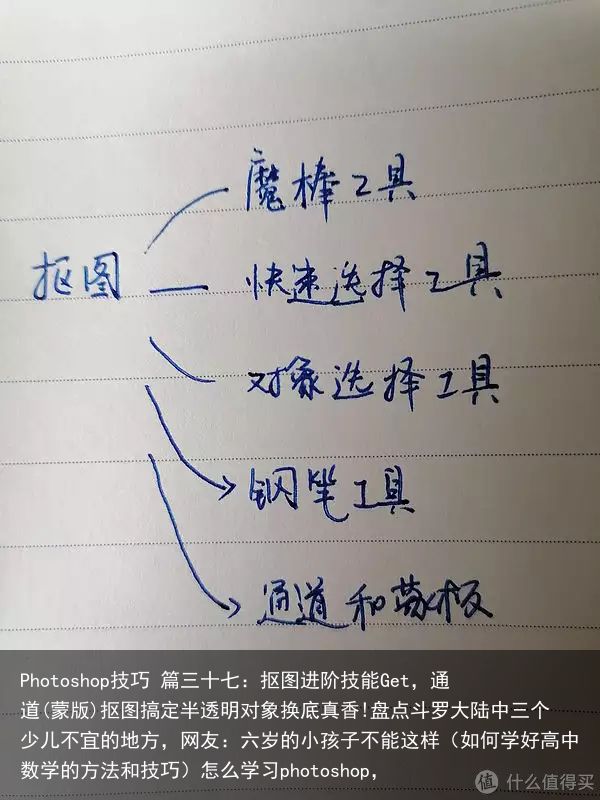 魔棒工具
抠图
快速选择工具
对象选择工具
钢笔工具
通道和蒙板
Photoshop技巧 篇三十七：抠图进阶技能Get，通
道(蒙版)抠图搞定半透明对象换底真香!盘点斗罗大陆中三个
少儿不宜的地方，网友：六岁的小孩子不能这样（如何学好高中
数学的方法和技巧）怎么学习photoshop，
值 什么值得买